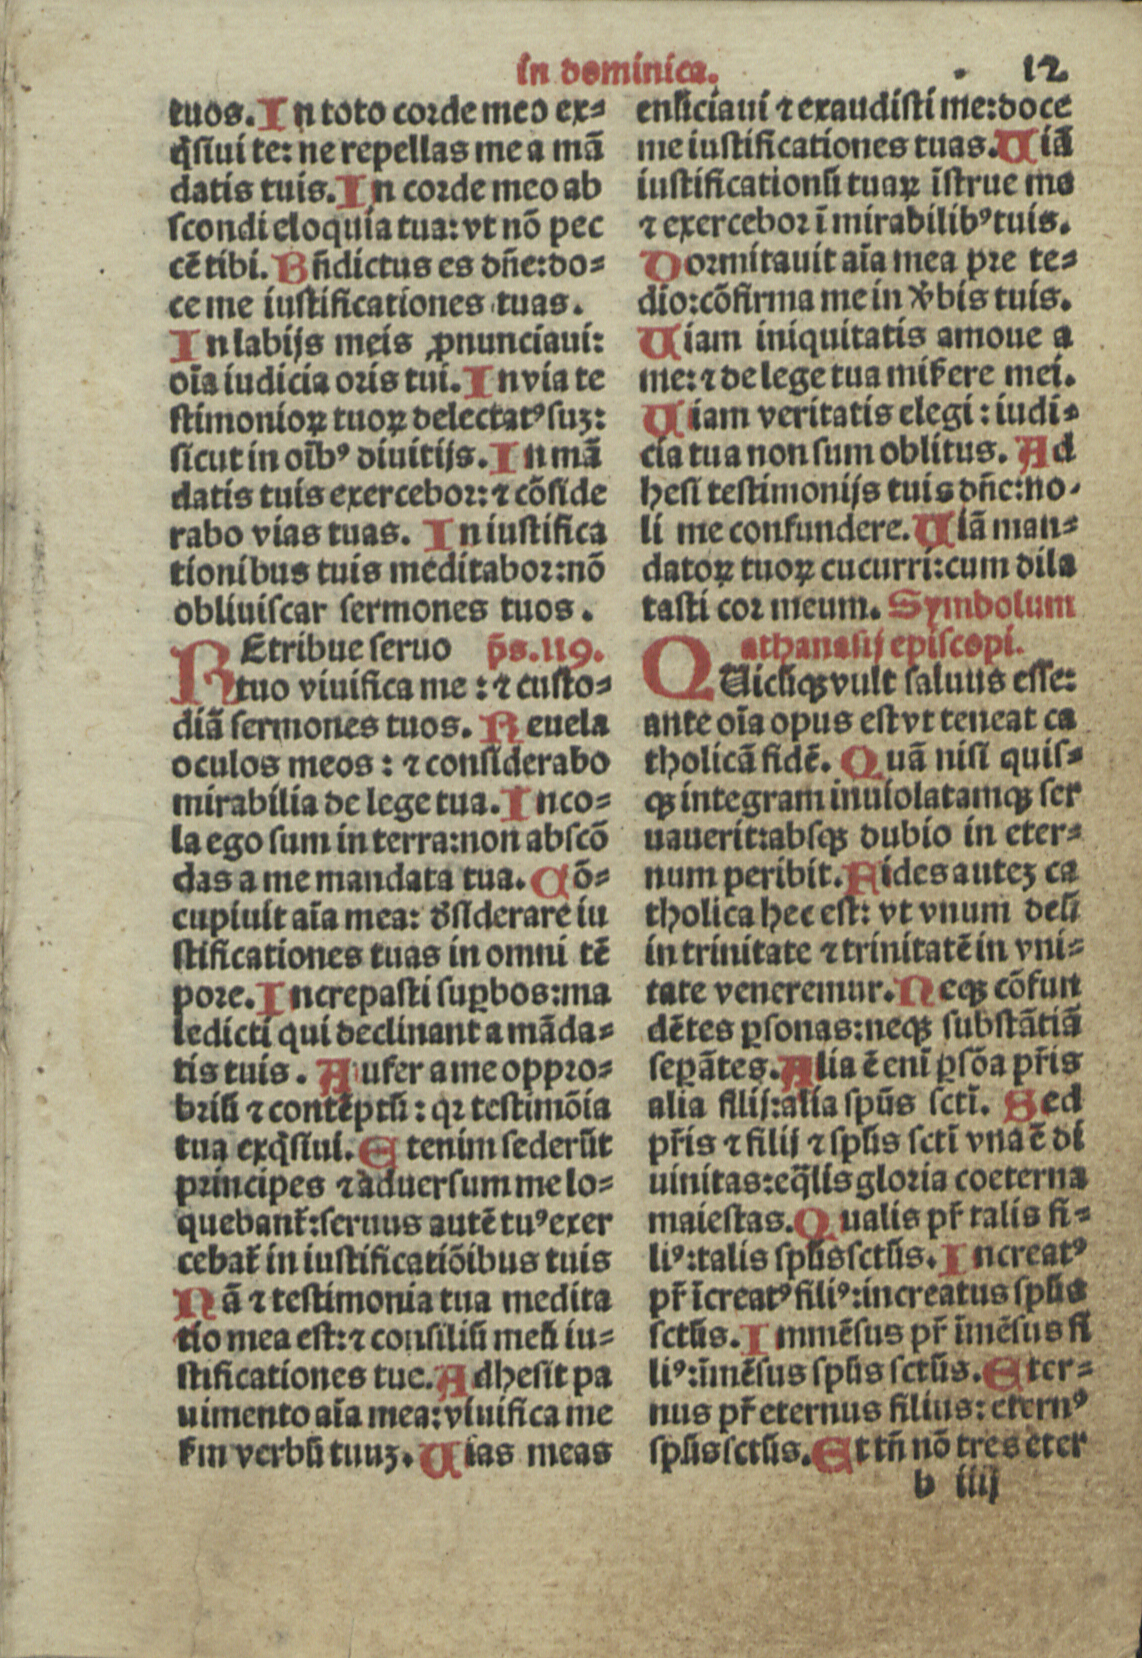 in dominica. 12
tuos. In toto corde meo ex-
q̃siui te: ne repellas me a mã
datis tuis. In corde meo ab
scondi eloquia tua: vt nõ pec
cẽ tibi. Bñdictus es dñe: do-
ce me iustificationes tuas.
In labijs meis ꝓnunciaui:
oĩa iudicia oris tui. In via te
stimonioꝝ tuoꝝ delectatꝰ suꝫ:
sicut in oĩbꝰ diuitijs. In mã
datis tuis exercebor: ⁊ cõside
rabo vias tuas. In iustifica
tionibus tuis meditabor: nõ
obliuiscar sermones tuos.
REtribue seruo p̃s. 119.
tuo viuifica me: ⁊ custo-
diã sermones tuos. Reuela
oculos meos: ⁊ considerabo
mirabilia de lege tua. Inco-
la ego sum in terra: non abscõ
das a me mandata tua. Cõ-
cupiuit aĩa mea: d̃siderare iu
stificationes tuas in omni tẽ
pore. Increpasti suꝑbos: ma
ledicti qui declinant a mãda-
tis tuis. Aufer a me oppro-
briũ ⁊ contẽptũ: qꝛ testimõia
tua exq̃siui. Etenim sederũt
principes ⁊ aduersum me lo-
quebant̃: seruus autẽ tuꝰ exer
cebat̃ in iustificatiõibus tuis
Nã ⁊ testimonia tua medita
tio mea est: ⁊ consiliũ meũ iu-
stificationes tue. Adhesit pa
uimento aĩa mea: viuifica me
s̃m verbũ tuuꝫ. Uias meas
enũciaui ⁊ exaudisti me: doce
me iustificationes tuas. Uiã
iustificationũ tuaꝝ ĩstrue me
⁊ exercebor ĩ mirabilibꝰ tuis.
Dormitauit aĩa mea pre te-
dio: cõfirma me in v̓bis tuis.
Uiam iniquitatis amoue a
me: ⁊ de lege tua mis̃ere mei.
Uiam veritatis elegi: iudi-
cia tua non sum oblitus. Ad
hesi testimonijs tuis dñe: no-
li me confundere. Uiã man-
datoꝝ tuoꝝ cucurri: cum dila
tasti cor meum. Symbolum
athanasij episcopi.
QUicũqꝫ vult saluus esse:
ante oĩa opus est vt teneat ca
tholicã fidẽ. Quã nisi quis-
qꝫ integram inuiolatamqꝫ ser
uauerit: absqꝫ dubio in eter-
num peribit. Fides auteꝫ ca
tholica hec est: vt vnum deũ
in trinitate ⁊ trinitatẽ in vni-
tate veneremur. Neqꝫ cõfun
dẽtes ꝑsonas: neqꝫ substãtiã
seꝑãtes. Alia ẽ eni ̃ꝑsõa pr̃is
alia filij: alia spũs scti ̃. Sed
pr̃is ⁊ filij ⁊ spũs scti ̃ vna ẽ di
uinitas: eq̃lis gloria coeterna
maiestas. Qualis pr̃ talis fi-
liꝰ: talis spũs sctũs. Increatꝰ
pr̃ ĩcreatꝰ filiꝰ: increatus spũs
sctũs. Immẽsus pr̃ ĩmẽsus fi
liꝰ: ĩmẽsus spũs sctũs. Eter-
nus pr̃ eternus filius: eternꝰ
spũs sctũs. Et tñ nõ tres eter
b iiij